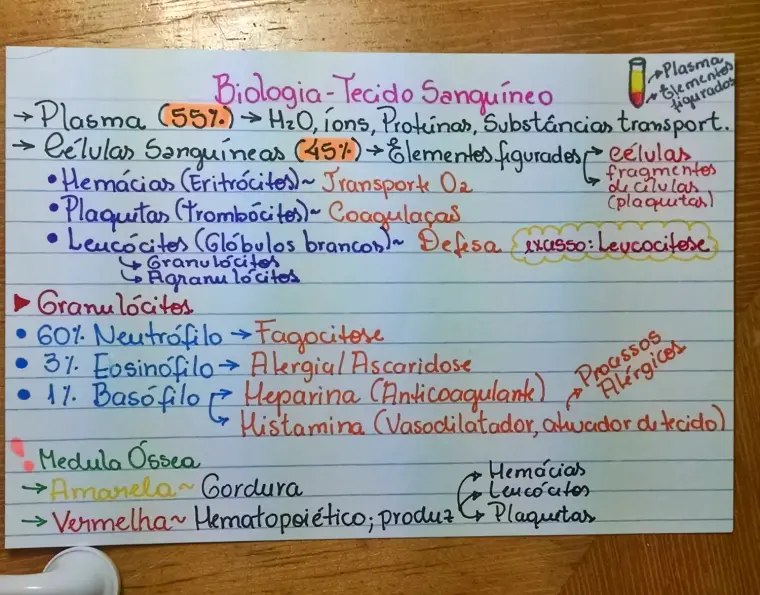 Biologia-Tecido Sanguíneo
→ Plasma
→ Elementos figurados
→ Plasma (55%) → H2O, íons, Proteínas, Substâncias transport.
→ Células Sanguíneas (45%) → Elementos figurados → células
→ fragmentos de células (plaquetas)
• Hemácias (Eritrócitos) ~ Transporte O2
• Plaquetas (Trombócitos) ~ Coagulação
• Leucócitos (Glóbulos brancos) ~ Defesa excesso: Leucocitose
↳ Granulócitos
↳ Agranulócitos
► Granulócitos
• 60% Neutrófilo → Fagocitose
• 3% Eosinófilo → Alergia/Ascaridose
• 1% Basófilo → Heparina (Anticoagulante)
→ Histamina (Vasodilatador, ativador de tecido)
→ Processos Alérgicos
! Medula Óssea
→ Amarela ~ Gordura
→ Vermelha ~ Hematopoiético; produz → Hemácias
→ Leucócitos
→ Plaquetas